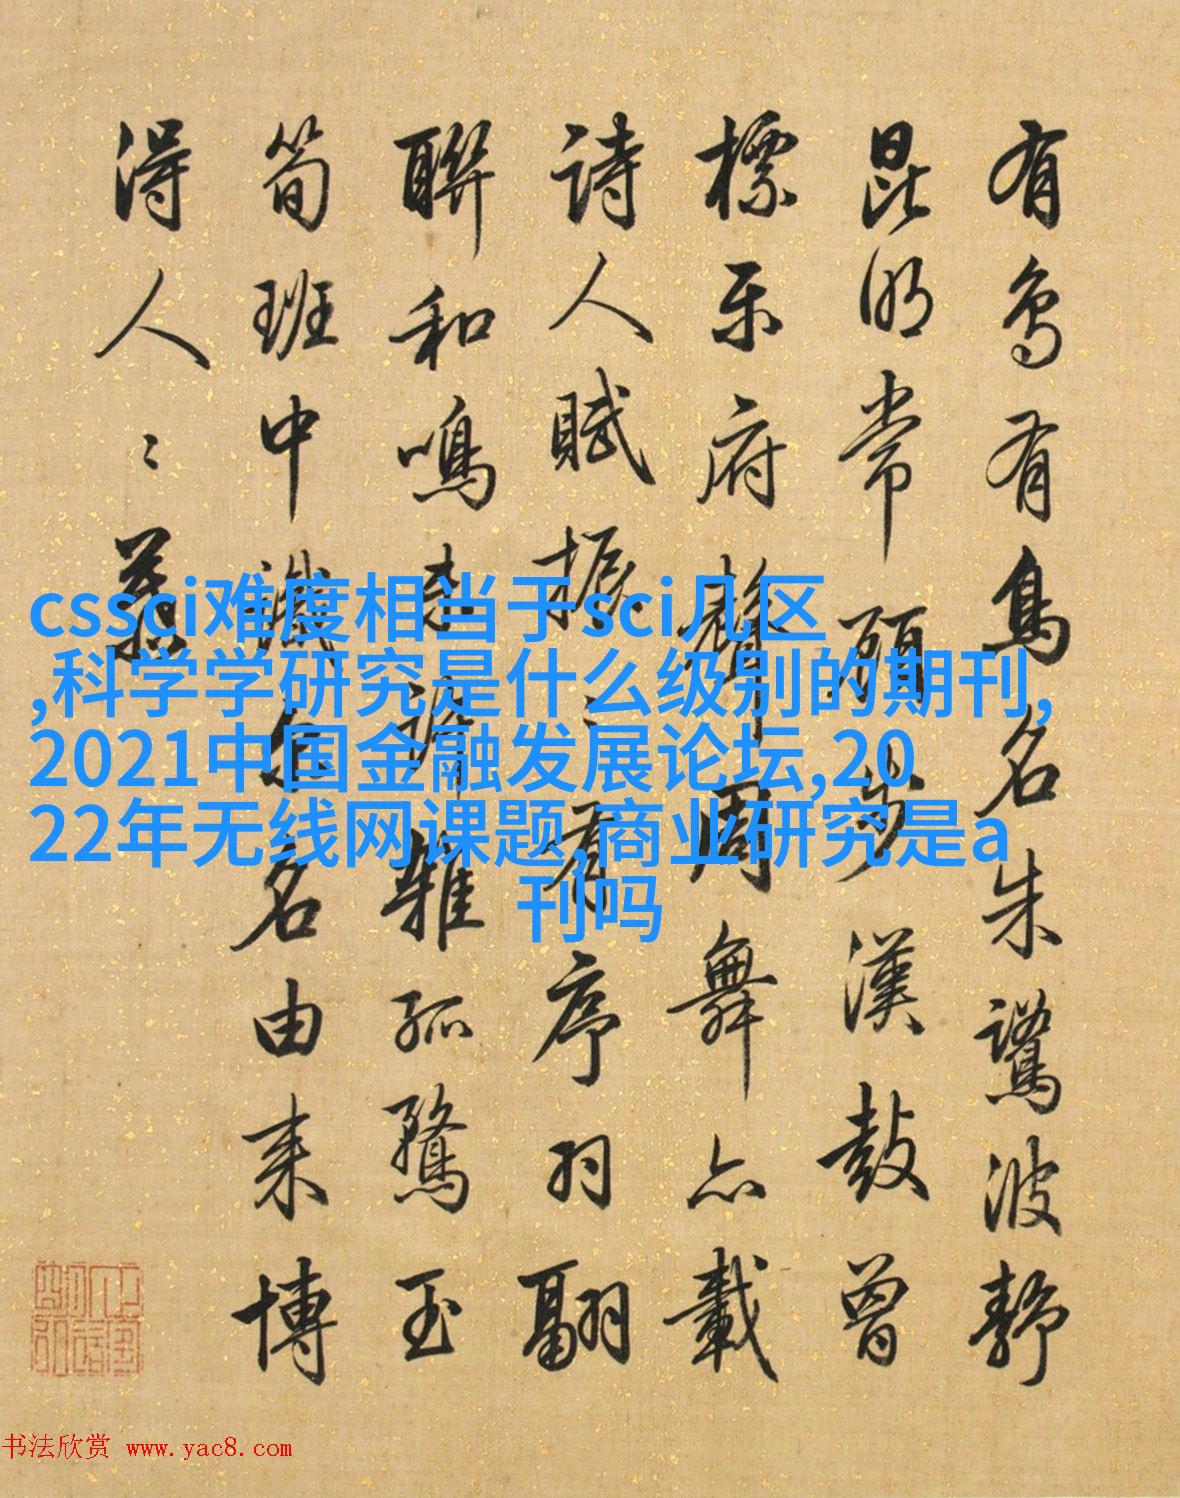 有鳥有鳥名朱鷺波靜
昆明常顧步漢鼓曾
標樂府聲周舞亦載
詩人賦振〻有序羽翮
聯和鳴雜孤鶩玉
筍班中識名由来博
得人〻
cssci难度相当于sci几区
,科学学研究是什么级别的期刊,
2021中国金融发展论坛,20
22年无线网课题,商业研究是a
刊吗
书法欣赏 www.yac8.com